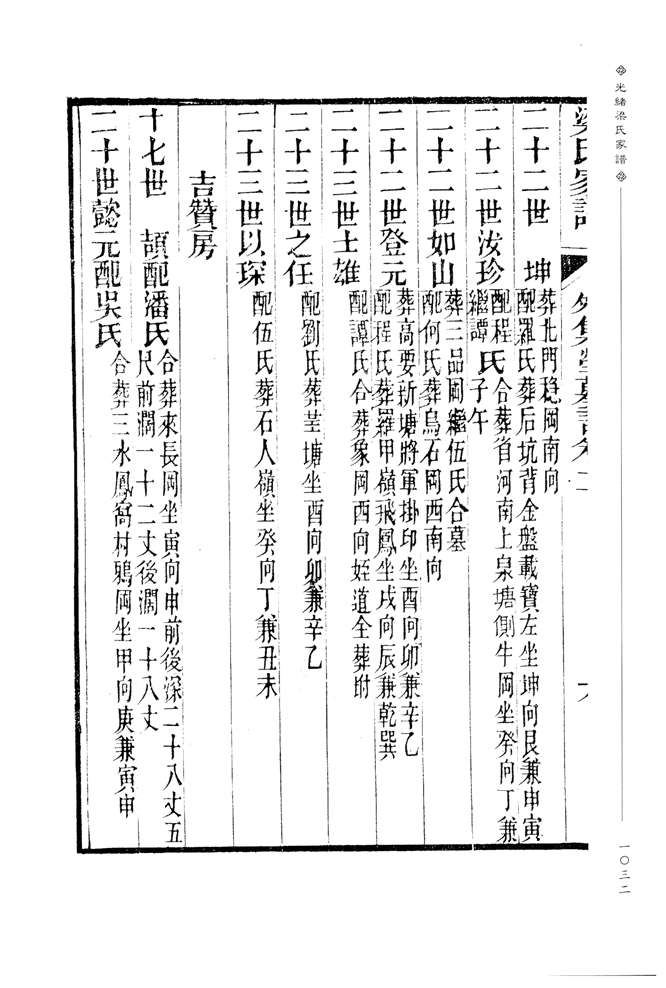 光緒梁氏家譜
一〇三二
二十二世 坤
葬北門穩岡南向
配羅氏葬后坑背金盤載寶左坐坤向艮兼申寅
二十二世汝珍
配程氏合葬省河南上泉塘側牛岡坐癸向丁兼
繼譚氏子午
二十二世如山
葬三品岡繼伍氏合墓
配何氏葬烏石岡西南向
二十二世登元
葬高要新塘將軍掛印坐酉向卯兼辛乙
配程氏葬羅甲嶺飛鳳坐戌向辰兼乾巽
二十三世士雄
配譚氏合葬象岡西向姪道全葬附
二十三世之任
配劉氏葬茎塘坐酉向卯兼辛乙
二十三世以琛
配伍氏葬石人嶺坐癸向丁兼丑未
吉贊房
十七世 頡配潘氏
合葬來長岡坐寅向申前後深二十八丈五
尺前濶一十二丈後濶一十八丈
二十世懿元配吳氏
合葬三水鳳窩村鴉岡坐甲向庚兼寅申